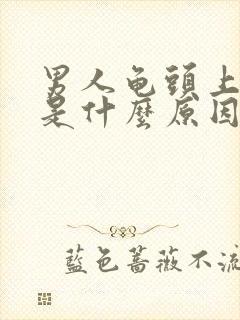 男人龟頭上
是什麼原因
藍色薔薇不流